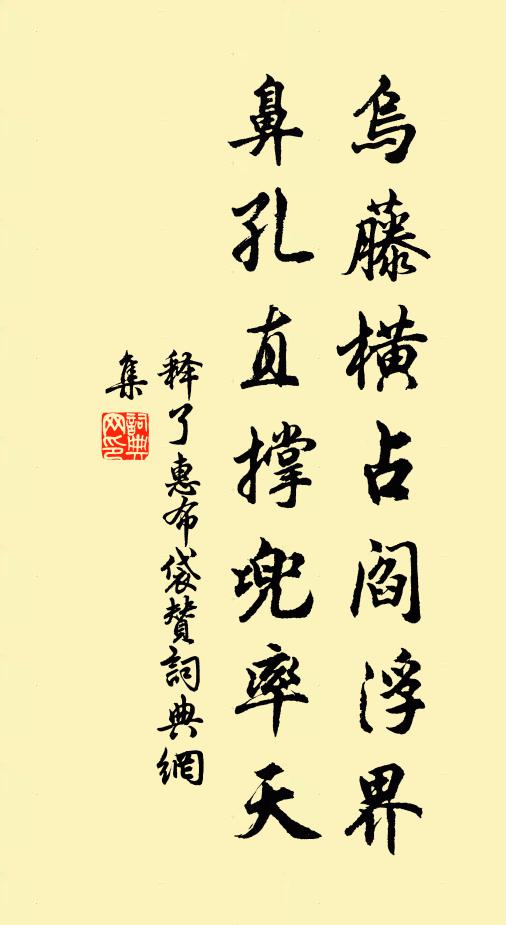 烏藤橫占閻浮界
鼻孔直撐兜率天
释了惠布袋赞詞典網
集
詞典网印